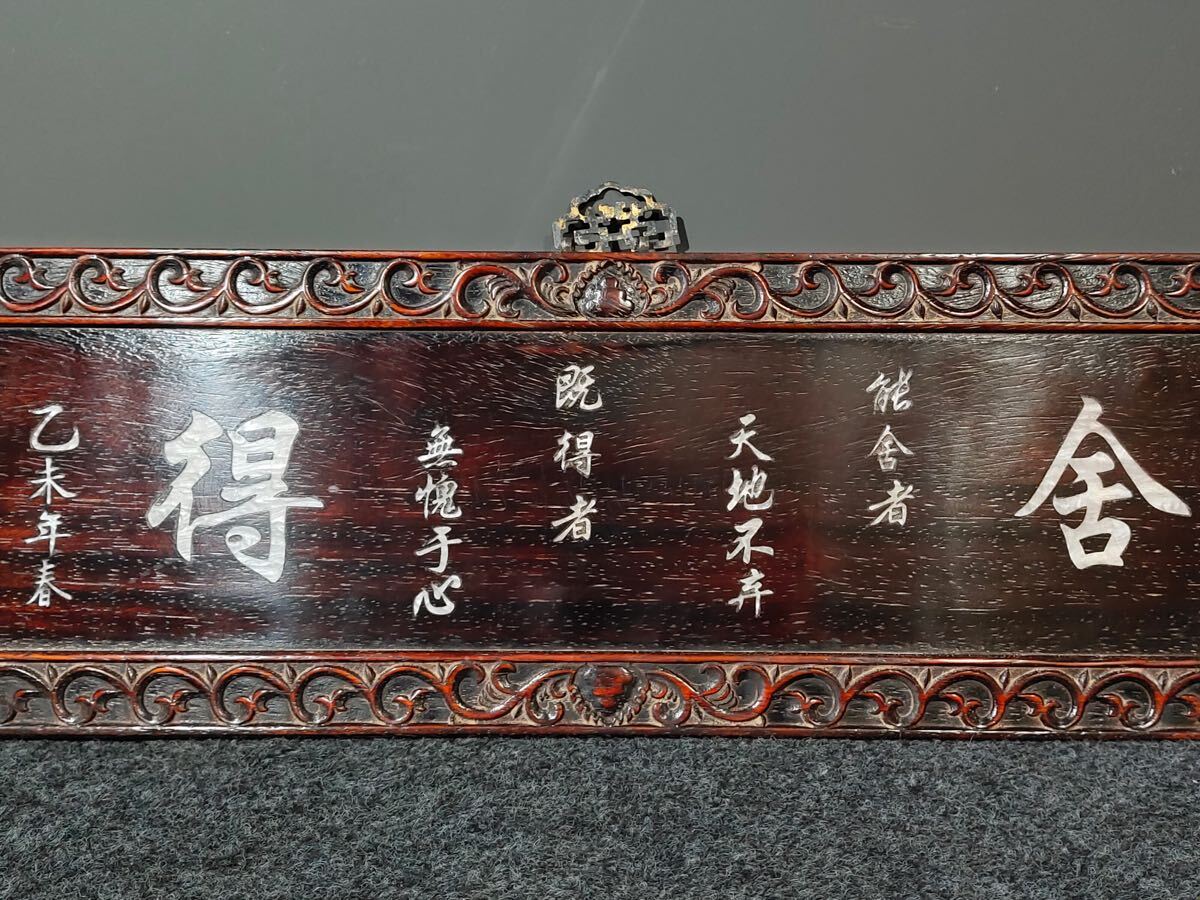 舍
能舍者
天地不弃
既得者
無愧于心
得
乙未年春